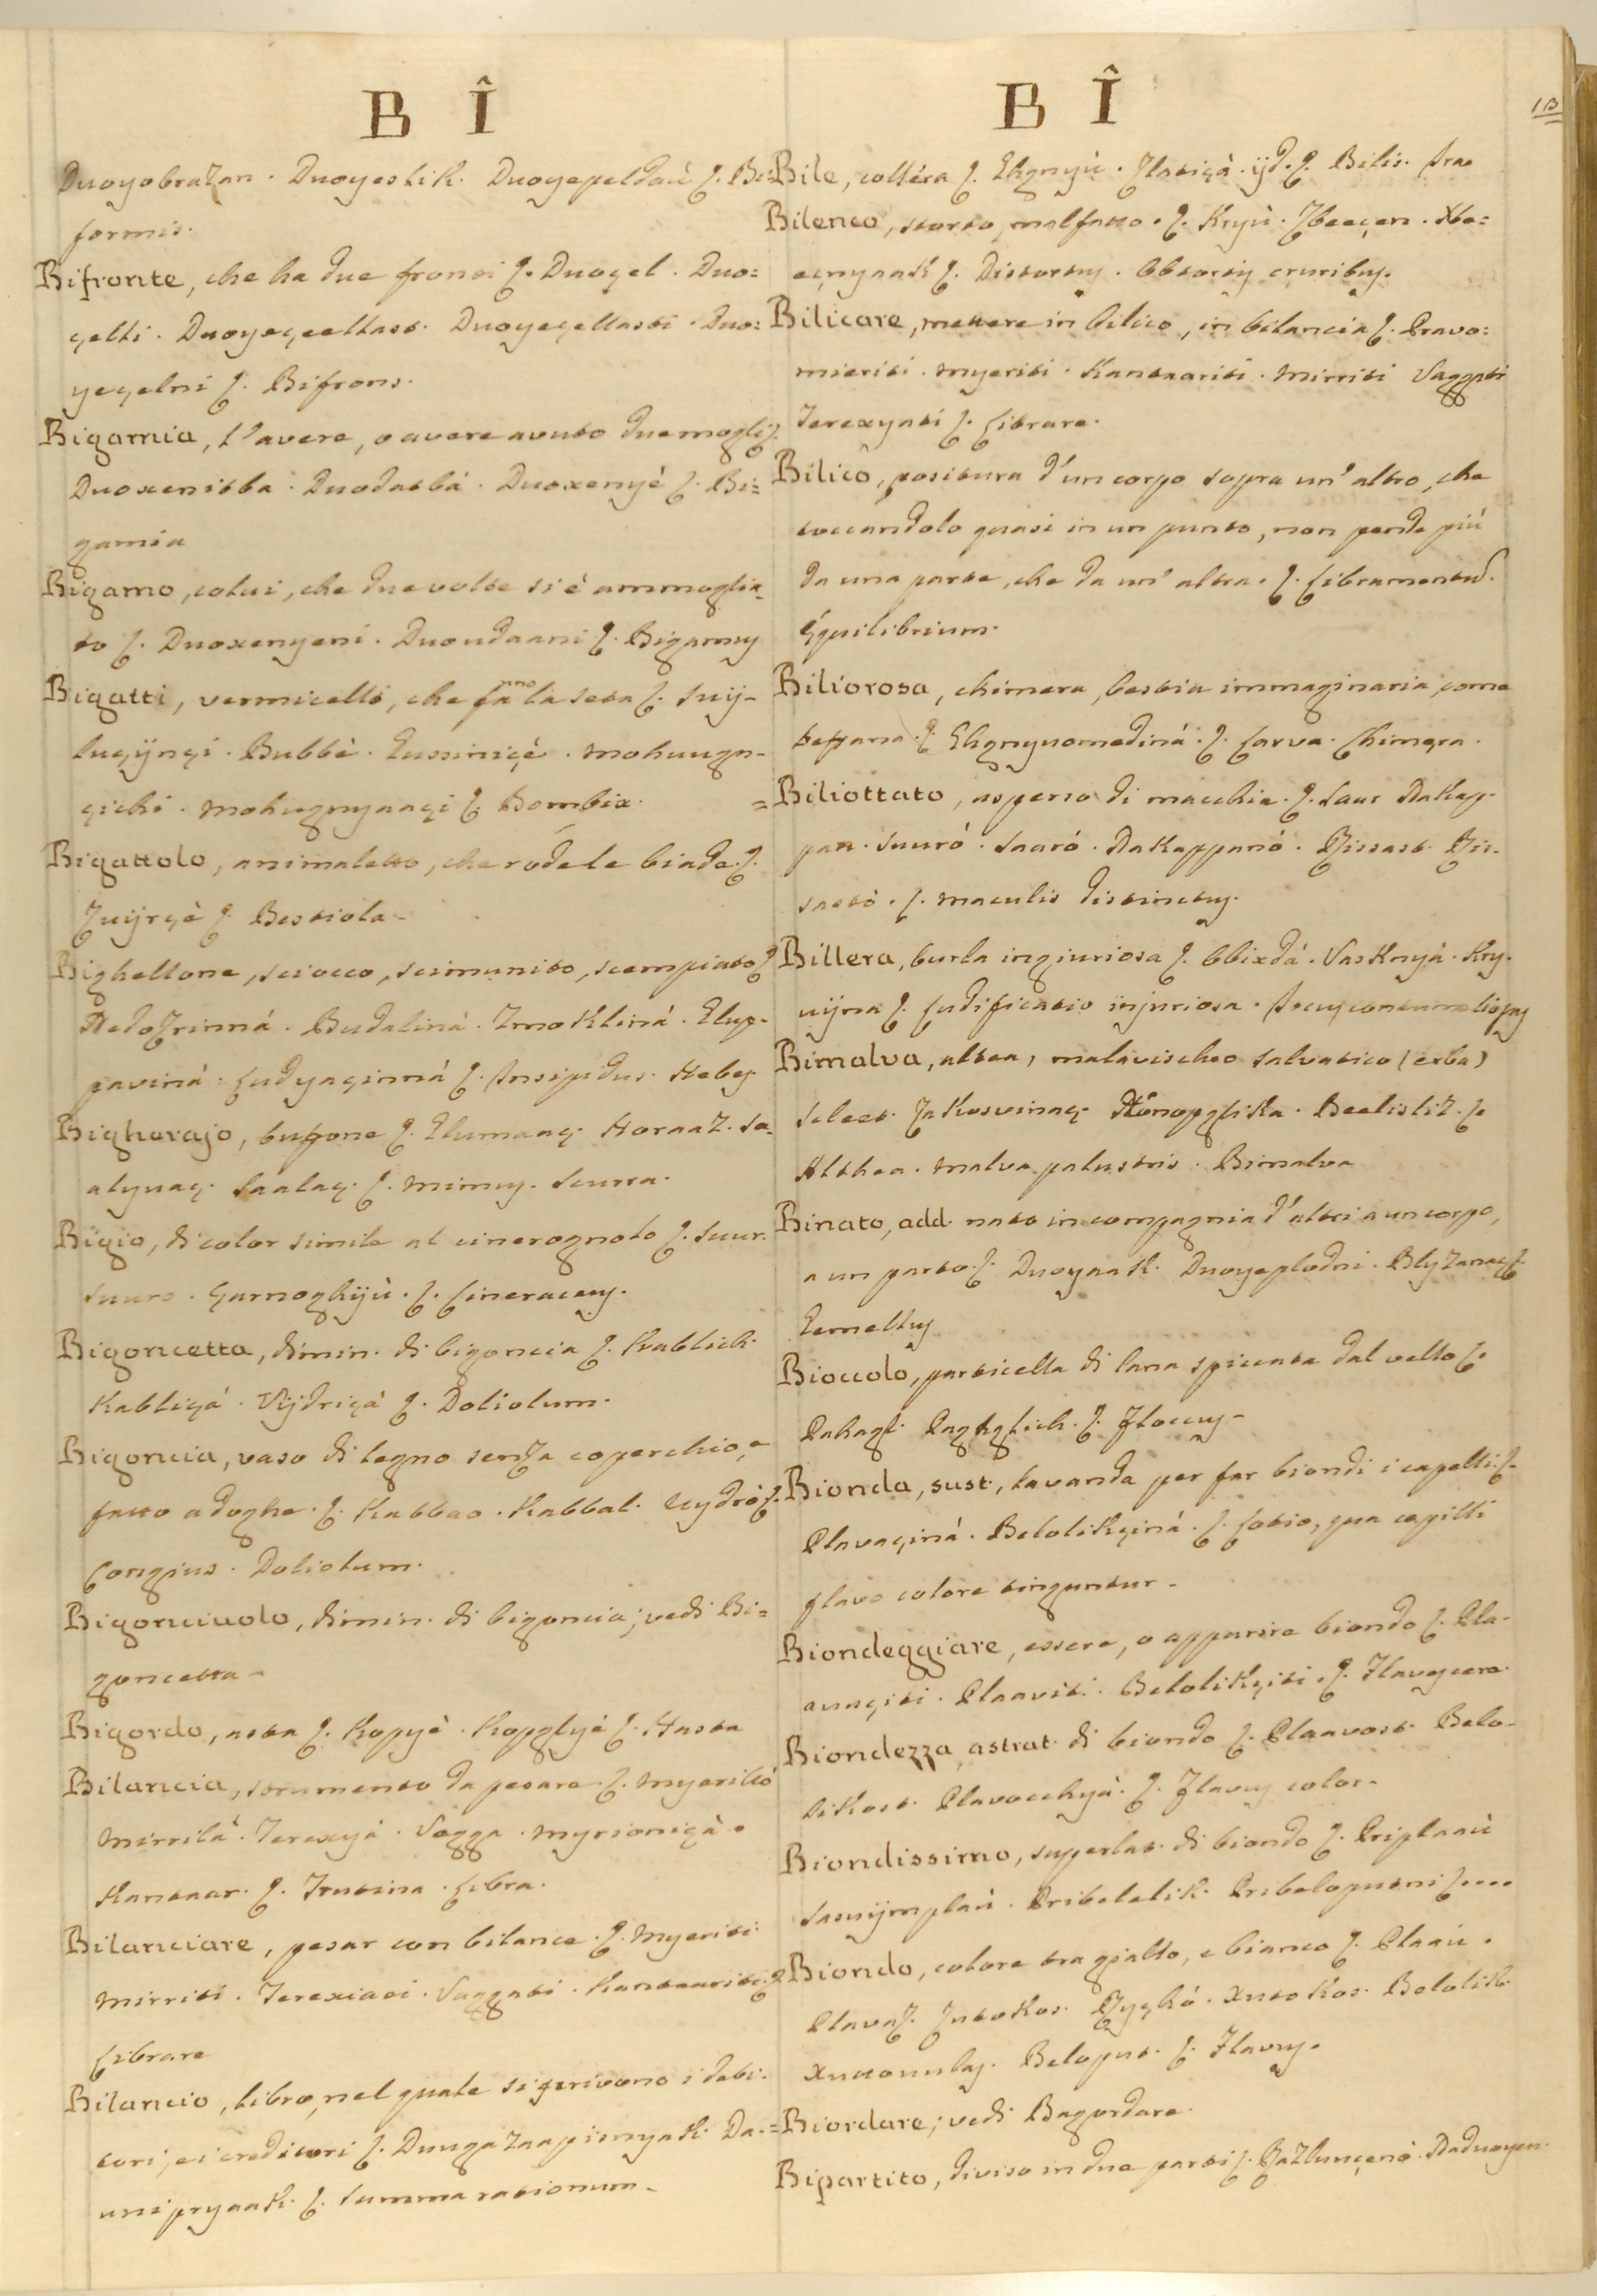 B Î
Duoyobrazan. Duoyeslik. Duoyepeldaù ʃ. Bi-
formis.
Bifronte, che ha due fronti ʃ. Duoçel. Duo=
çelti. Duoyeçeeltast. Duoyeçeltasti. Duo=
yeçelni ʃ. Bifrons.
Bigamia, l'avere, o avere avuto due mogli ʃ.
Duoxenitba. Duodatbá. Duoxenyè ʃ. Bi=
gamia
Bigamo, colui, che due volte si è ammoglia-
to ʃ. Duoxenyeni. Duoudaani ʃ. Bigamuy
Bigatti, vermicelli, che fanno la seta ʃ. Suij-
luçijnçi. Bubbè. Gussiniçè. Mohuugn-
çichi. Mohugnyaaçi ʃ. Bombix.
Bigattolo, animaletto, che rode le biade. ʃ.
Zuijrçè ʃ. Bestiola.
Bighellone, sciocco, scimunito, scempiato ʃ
Nedozrinná. Budaliná. Zmokliná. Glup-
paviná. Ludyaçinná ʃ. Insipidus. Hebey
Bigherajo, buffone ʃ. Glumaaç. Noraaz. Sa-
alyuaç. Saalaç. ʃ. Mimuy. Scurra.
Bigio, di color simile al cinerognolo ʃ. Suur.
Suuro. Garnoghijù. ʃ. Cineraceuy.
Bigoncetta, dimin. di bigoncia ʃ. Kablich
Kabliçá. Vijdriçá ʃ. Doliolum.
Bigoncia, vaso di legno senza coperchio, e
fatto a doghe. ʃ. Kabbao. Kabbal. Uydrò ʃ.
Congius. Doliolum.
Bigonciuolo, dimin. di bigoncia; vedi Bi=
goncetta.
Bigordo, asta ʃ. Kopyè. Kopglyè ʃ. Hasta
Bilancia, strumento da pesare. ʃ. Myeriló
Mirrilá. Terexyá. Vagga. Myrioniçà.
Kantaar. ʃ. Trutina. Libra.
Bilanciare, pesar con bilance. ʃ. Myeriti
Mirriti. Terexiati. Vaggati. Kantaariti. ʃ
Librare
Bilancio, libro, nel quale si scrivono i debi-
tori, e i creditori ʃ. Duuga zaapimyak. Da-=
uni pryaak. ʃ. Summa rationum.
B Î
13
Bile, collera ʃ. Ghgnyù. Zlatiçà. ijd. ʃ. Bilis. Ira
Bilenco, storto, malfatto. ʃ. Kryù. Zbeeçen. Xbe=
eçnyaak ʃ. Distortuy. Obtortiy cruribuy.
Bilicare, mettere in bilico, in bilancia ʃ. Pravo=
mieriti. Myeriti. Kantaariti. Mirriti Vaggati
Terexyati ʃ. Librare.
Bilico, positura d'un corpo sopra un' altro, che
toccandolo quasi in un punto, non pende più
da una parte, che da un' altra. ʃ. Libramentuʃ.
Equilibrium.
Biliorosa, chimera, bestia immaginaria, come
beffana. ʃ. Ghgnyuomediná. ʃ. Larva. Chimera.
Biliottato, asperso di macchie. ʃ. Saur Nakap-
pan. Suuró. Saaró. Nakappanó. Pissast. Pis-
sastò. ʃ. Maculis distinctuy.
Billera, burla ingiuriosa ʃ. Obixdá. Vasknyá. Kry-
uijna ʃ. Ludificatio injuriosa. Iocuy contumeliosuy
Bimalva, altea, malavischeo salvatico (erba)
Sleet. Zakosvinaç. Kónopglika. Beelisliz. ʃ.
Althea. Malva palustris. Bimalva
Binato, add. nato in compagnia d'altri a un corpo,
a un parto. ʃ. Duoynak. Duoyeplodni. Blyzanaç ʃ.
Gemelluy
Bioccolo, particella di lana spiccata dal vello ʃ.
Pahagl. Paghglich. ʃ. Floccuy.
Bionda, sust., lavanda per far biondi i capelli. ʃ.
Plavaçiná. Belolikçiná. ʃ. Lotio, qua capilli
flavo colore tinguntur.
Biondeggiare, essere, o apparire biondo ʃ. Pla-
avaçiti. Plaaviti. Belolikçiti. ʃ. Flavescere.
Biondezza, astrat. di biondo ʃ. Plaavost. Belo-
likost. Plavocchyá. ʃ. Flavuy color.
Biondissimo, superlat. di biondo ʃ. Priplaaù
Sasuijmplaù. Pribelolik. Pribeloputni ʃ....
Biondo, colore tra giallo, e bianco ʃ. Plaaù.
Plavaʃ. Zutokos. Ryghó. Xutokos. Belolik
Xuttouulas. Beloput. ʃ. Flavuy.
Biordare; vedi Bagordare.
Bipartito, diviso in due parti ʃ. Razlunçenò. Naduoyen